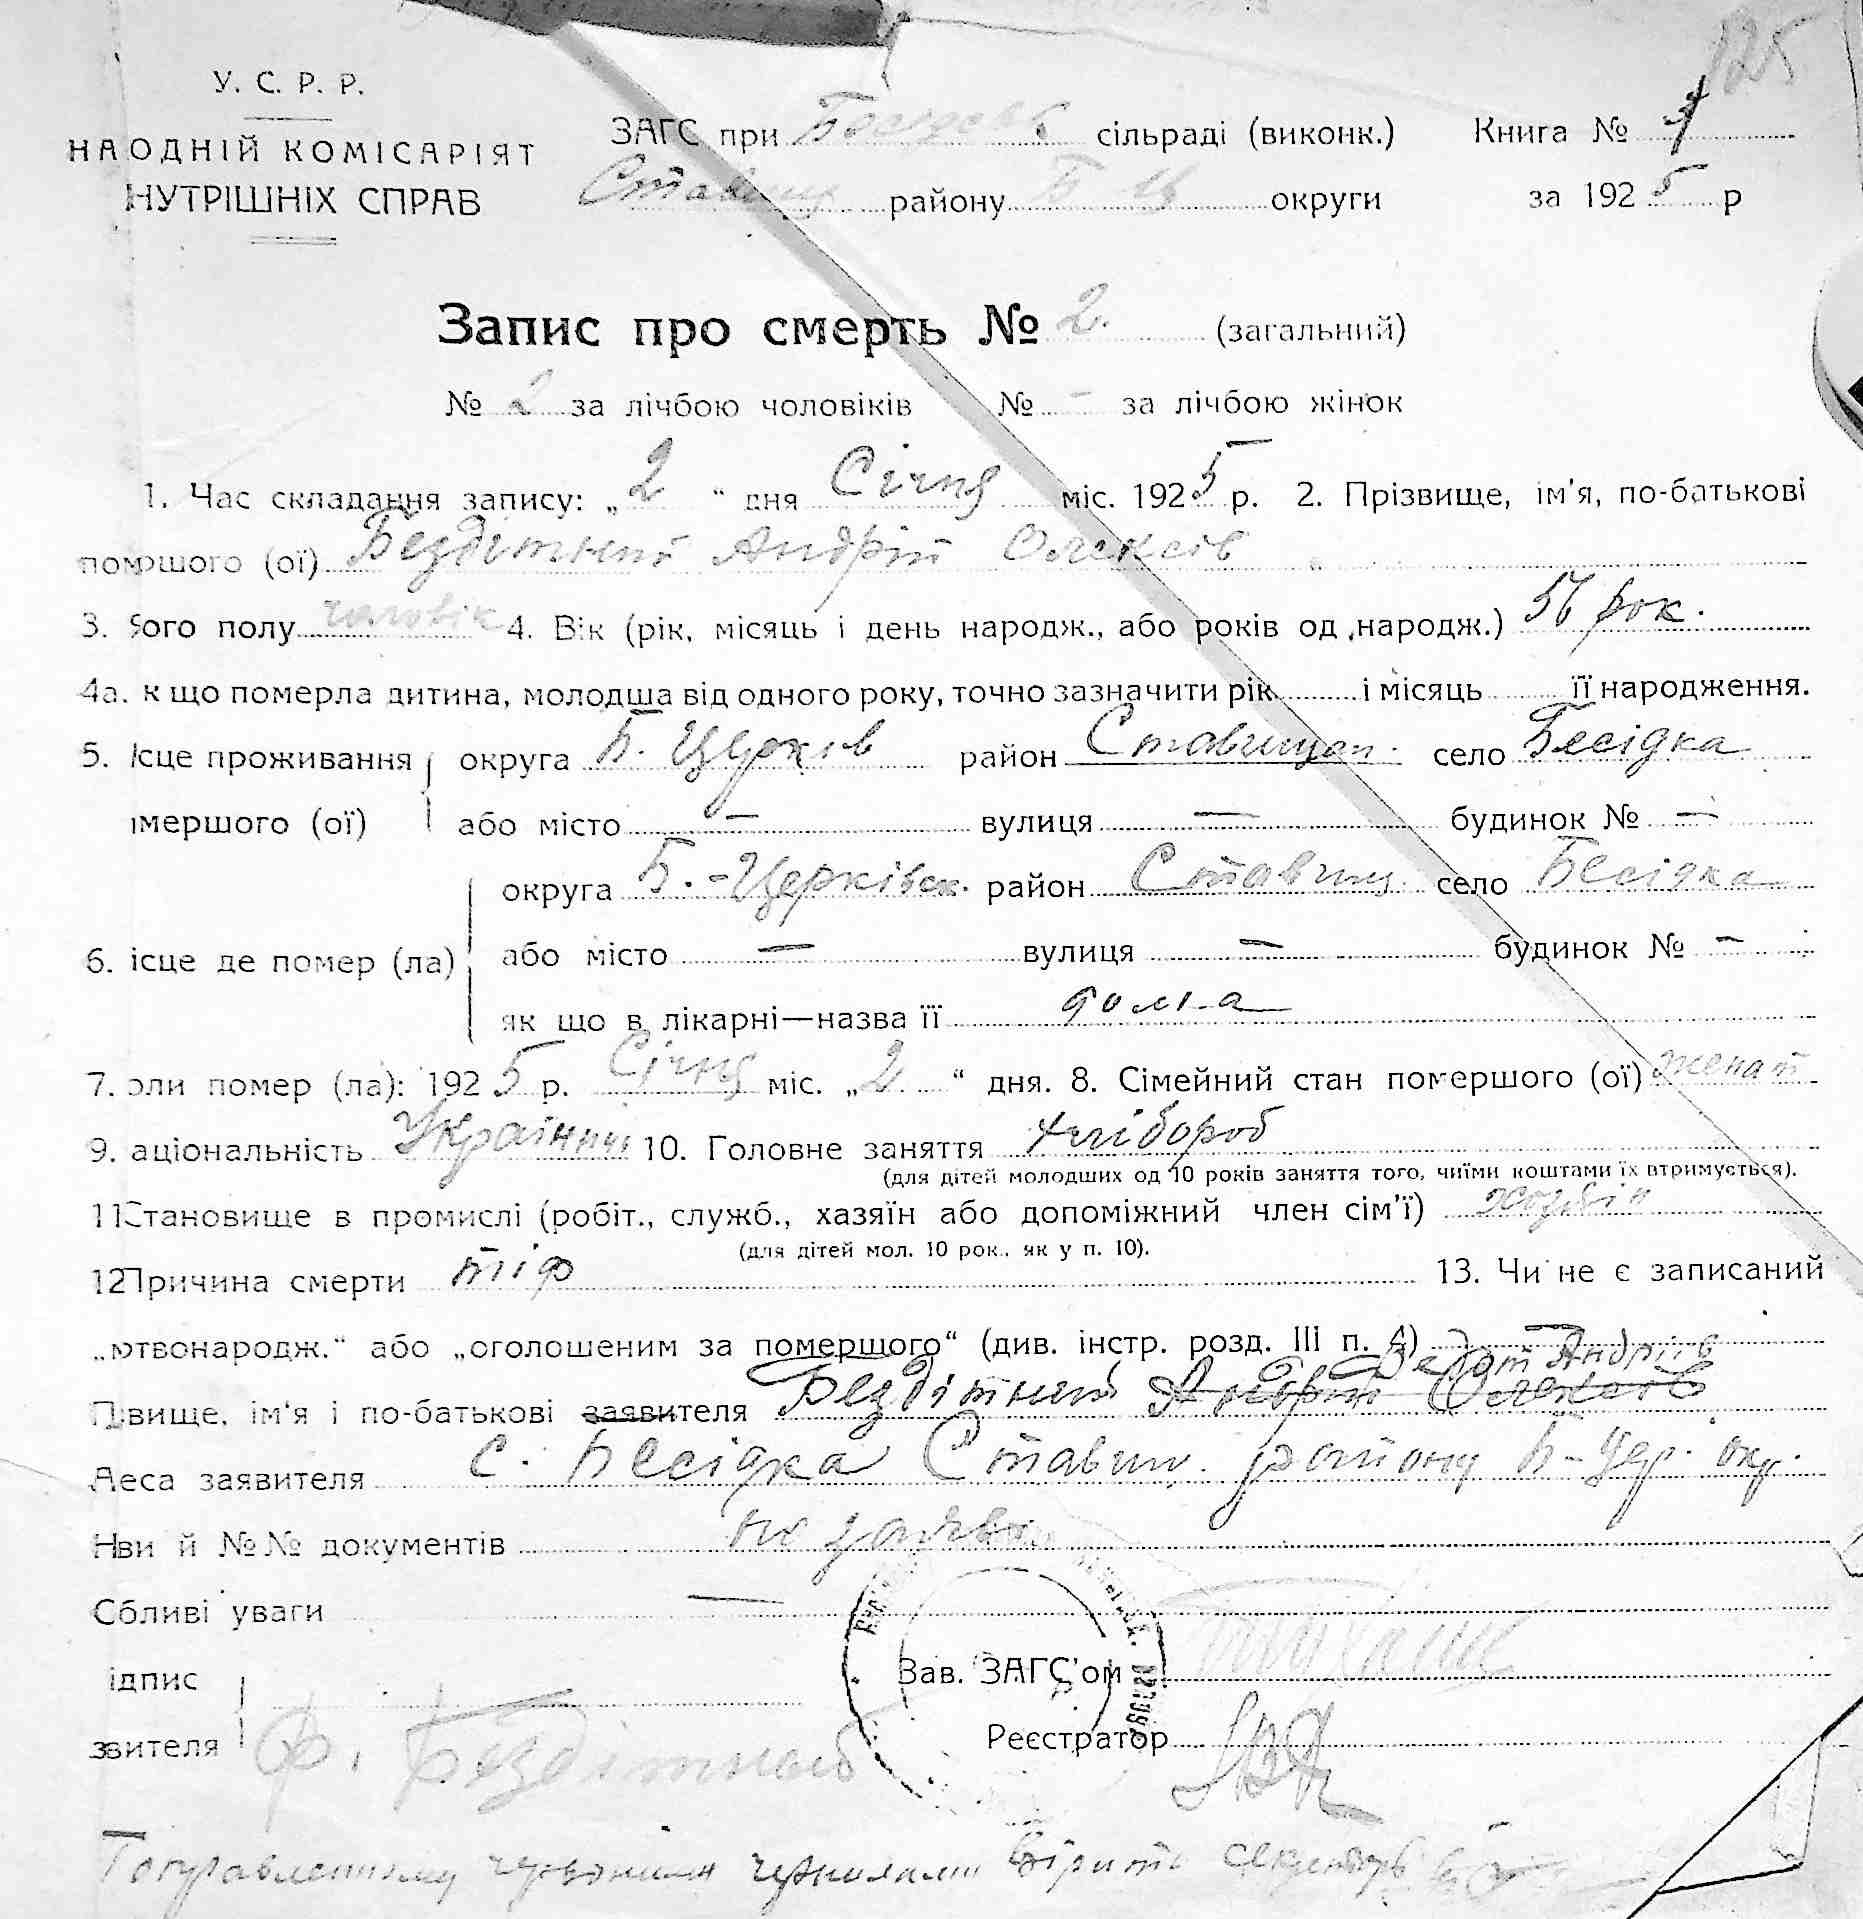 125
У. С. Р. Р.
НАОДНІЙ КОМІСАРІЯТ
НУТРІШНІХ СПРАВ
ЗАГС при сільраді (виконк.) Книга № 1
Ставищ району Б Ц округи за 1925 р
Запис про смерть № 2. (загальний)
№ 2 за лічбою чоловіків № - за лічбою жінок
1. Час складання запису: „2“ дня Січня міс. 1925 р. 2. Прізвище, ім'я, по-батькові
помршого (ої) Бездітний Андрій Олексів
3. Його полу чоловік 4. Вік (рік, місяць і день народж., або років од народж.) 56 рок.
4а. к що померла дитина, молодша від одного року, точно зазначити рік і місяць її народження.
5. ісце проживання округа Б. Церків район Ставищан. село Бесідка
мершого (ої) або місто — вулиця — будинок № —
округа Б.-Церківск. район Ставищ. село Бесідка
6. ісце де помер (ла) або місто — вулиця — будинок № —
як що в лікарні—назва її дома
7. оли помер (ла): 1925 р. Січня міс. „2“ дня. 8. Сімейний стан помершого (ої) женат
9. аціональність Українець 10. Головне заняття хлібороб
(для дітей молодших од 10 років заняття того, чиїми коштами їх втримується).
11 Становище в промислі (робіт., служб., хазяїн або допоміжний член сім'ї) хозяїн
(для дітей мол. 10 рок., як у п. 10).
12 Причина смерти тіф 13. Чи не є записаний
„ютвонародж.“ або „оголошеним за помершого“ (див. інстр. розд. III п. 4) —
Федот Андріїв
Пізвище, ім'я і по-батькові заявителя Бездітний Андрій Олексів
Аеса заявителя с. Бесідка Ставищ. району Б-Цер. окр.
Нви й №№ документів не заявив
Собливі уваги —
ідпис Зав. ЗАГС'ом
звителя Ф. Бездітный Реєстратор
червоними чернилами вірить